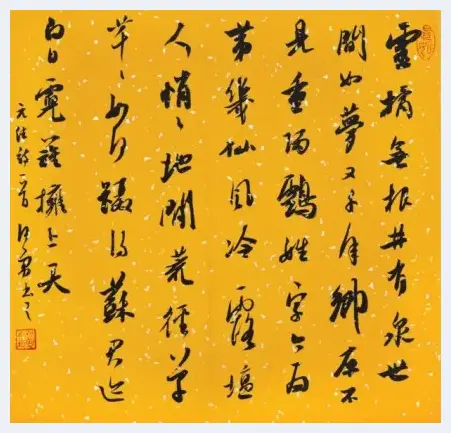 靈橘無根井有泉世
間如夢又千年鄉不
見重歸鶴姓字今為
第幾仙風冷露壇
人悄悄地閒荒徑草
芊芊如何躡得蘇君迹
白日霓旌擁上天
元结詩一首